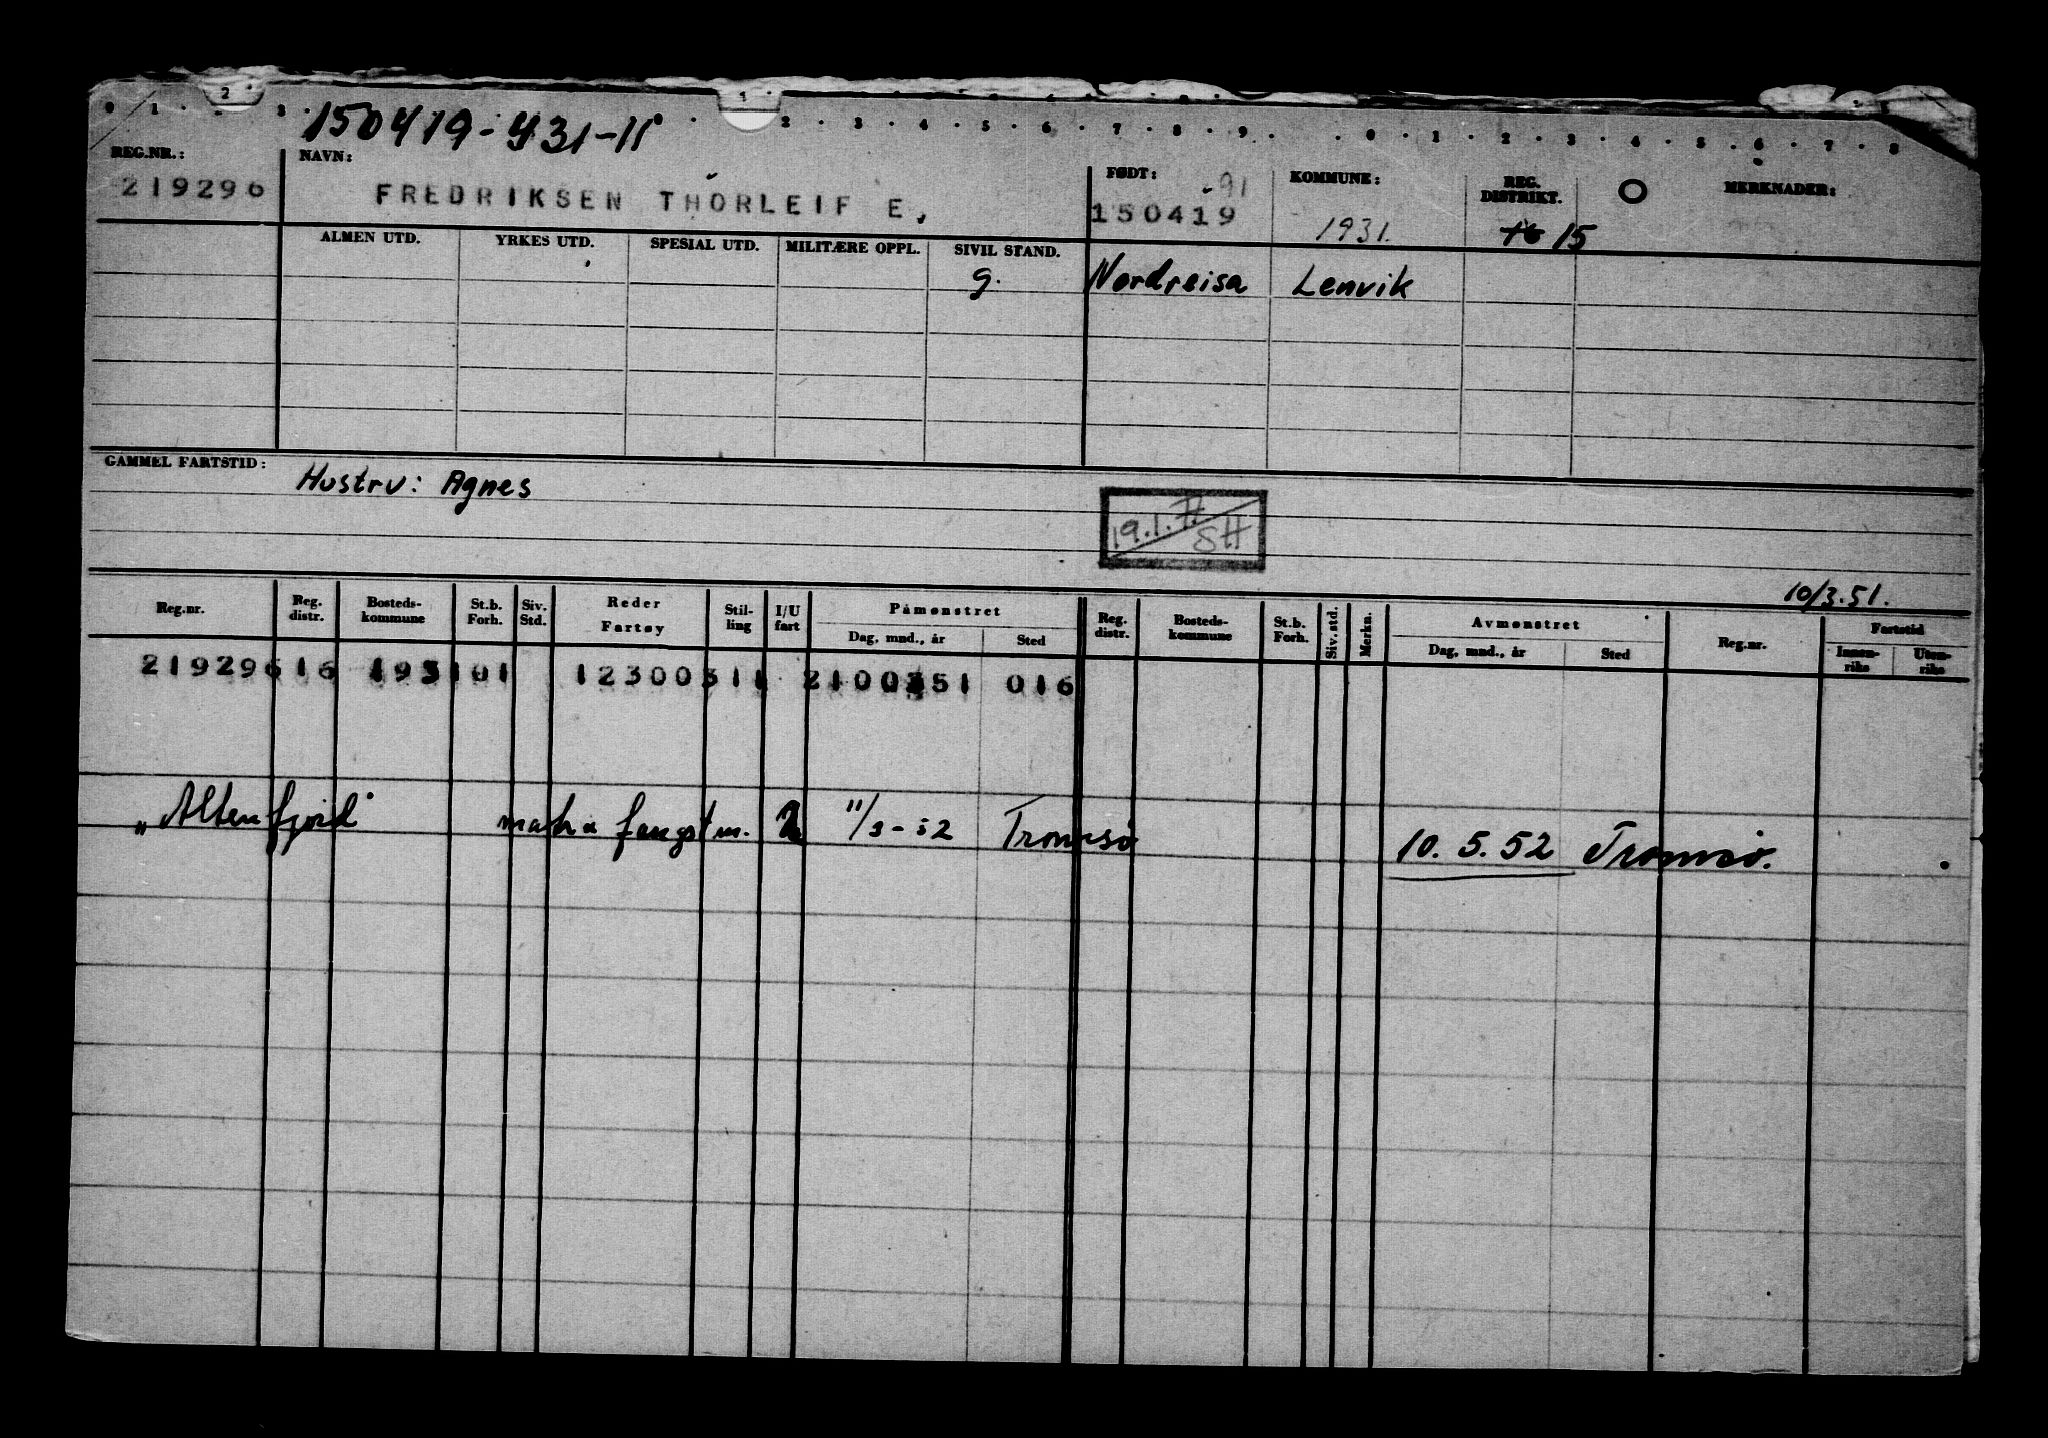 0 1 . 2 . 3 . 1 . 2 . 3 . 4 . 5 . 6 . 7 . 8 . 9 . . 0 . 1 . 2 . 3 . 4 . 5 . 6 . 7 . 8
150419-431-11
REG.NR.: NAVN: FØDT: KOMMUNE: REG. DISTRIKT. O MERKNADER:
219296 FREDRIKSEN THORLEIF E. 150419 -91 1931. 16 15
ALMEN UTD. YRKES UTD. SPESIAL UTD. MILITÆRE OPPL. SIVIL STAND.
g. Nordreisa Lenvik
GAMMEL FARTSTID: Hustru: Agnes
19.1. SH
10/3.51.
Reg.nr. Reg. distr. Bosteds-kommune St.b. Forh. Siv. Std. Reder Fartøy Stil-ling I/U fart Påmønstret Dag, mnd., år Sted Reg. distr. Bosteds-kommune St.b. Forh. Siv. std. Merkn. Avmønstret Dag, mnd., år Sted Reg.nr. Fartstid Innen-riks Uten-riks
219296 16 1931 01 12300 311 2100351 016
"Altenfjord" fangstm. 2 11/3-52 Tromsø 10.5.52 Tromsø.